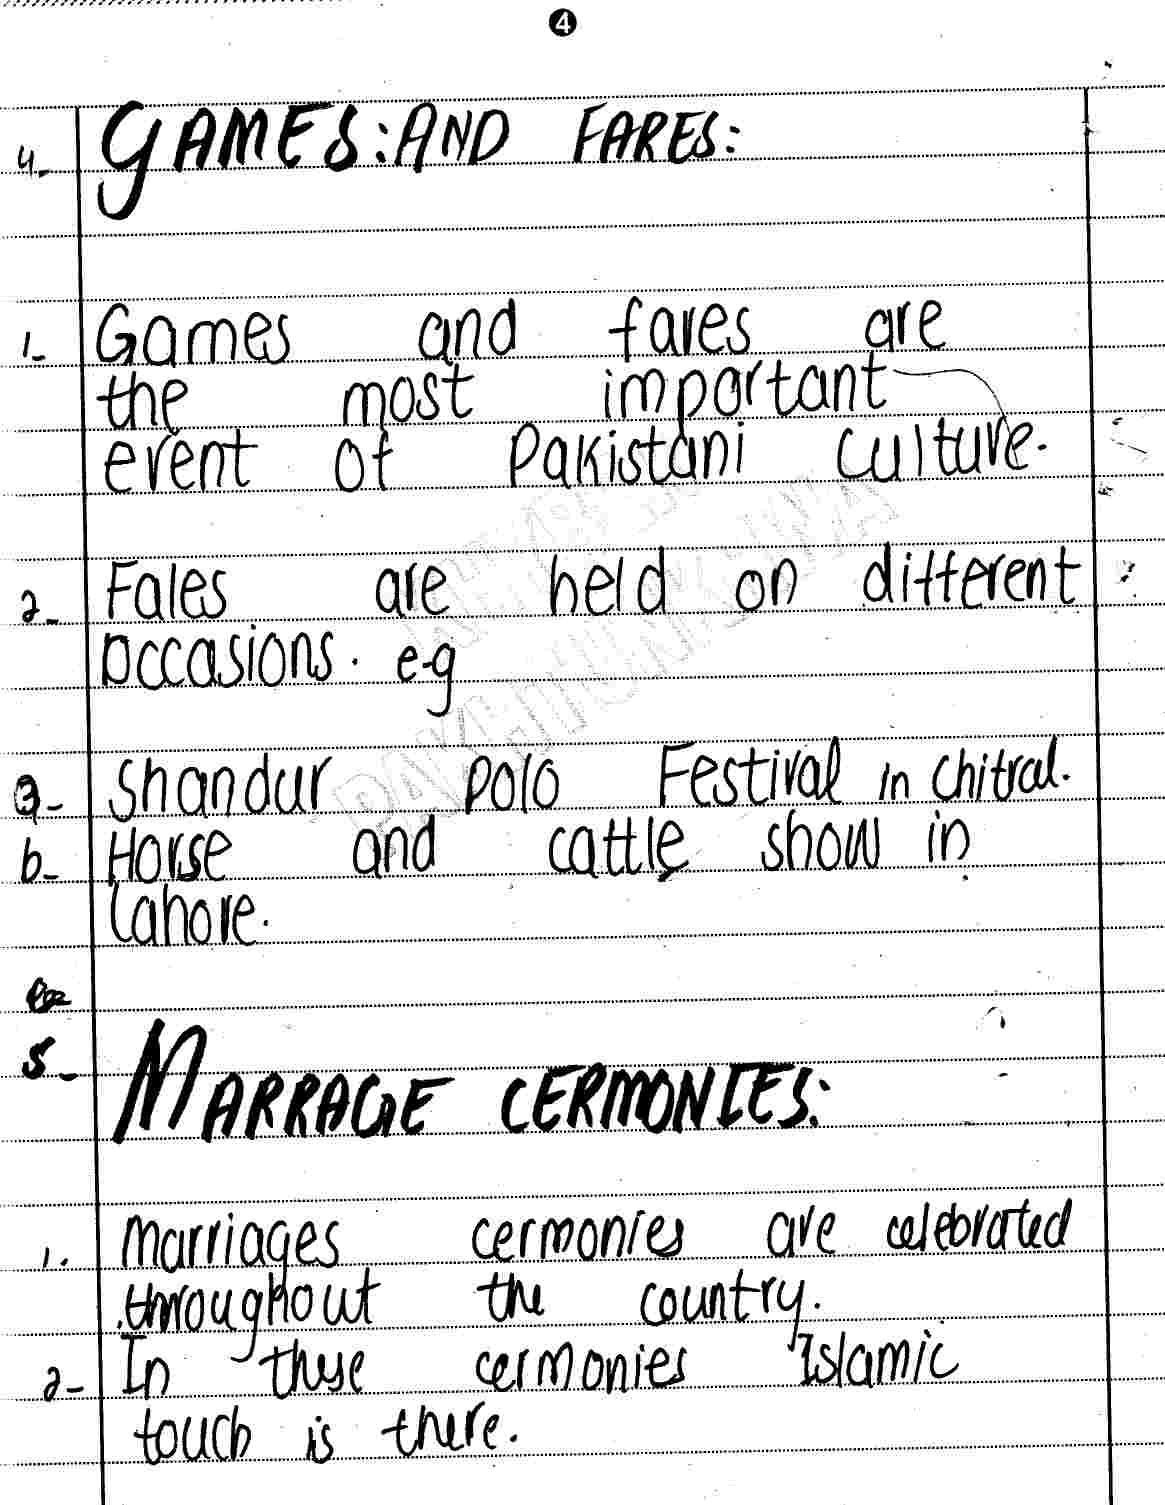 4
4- GAMES: AND FARES:
1- Games and fares are
the most important
event of Pakistani culture.
2- Fales are held on different
occasions. e.g
a- Shandur polo Festival in Chitral.
b- Horse and cattle show in
Lahore.
5- MARRAGE CERMONIES:
1. Marriages cermonies are celebrated
throughout the country.
2- In these cermonies Islamic
touch is there.